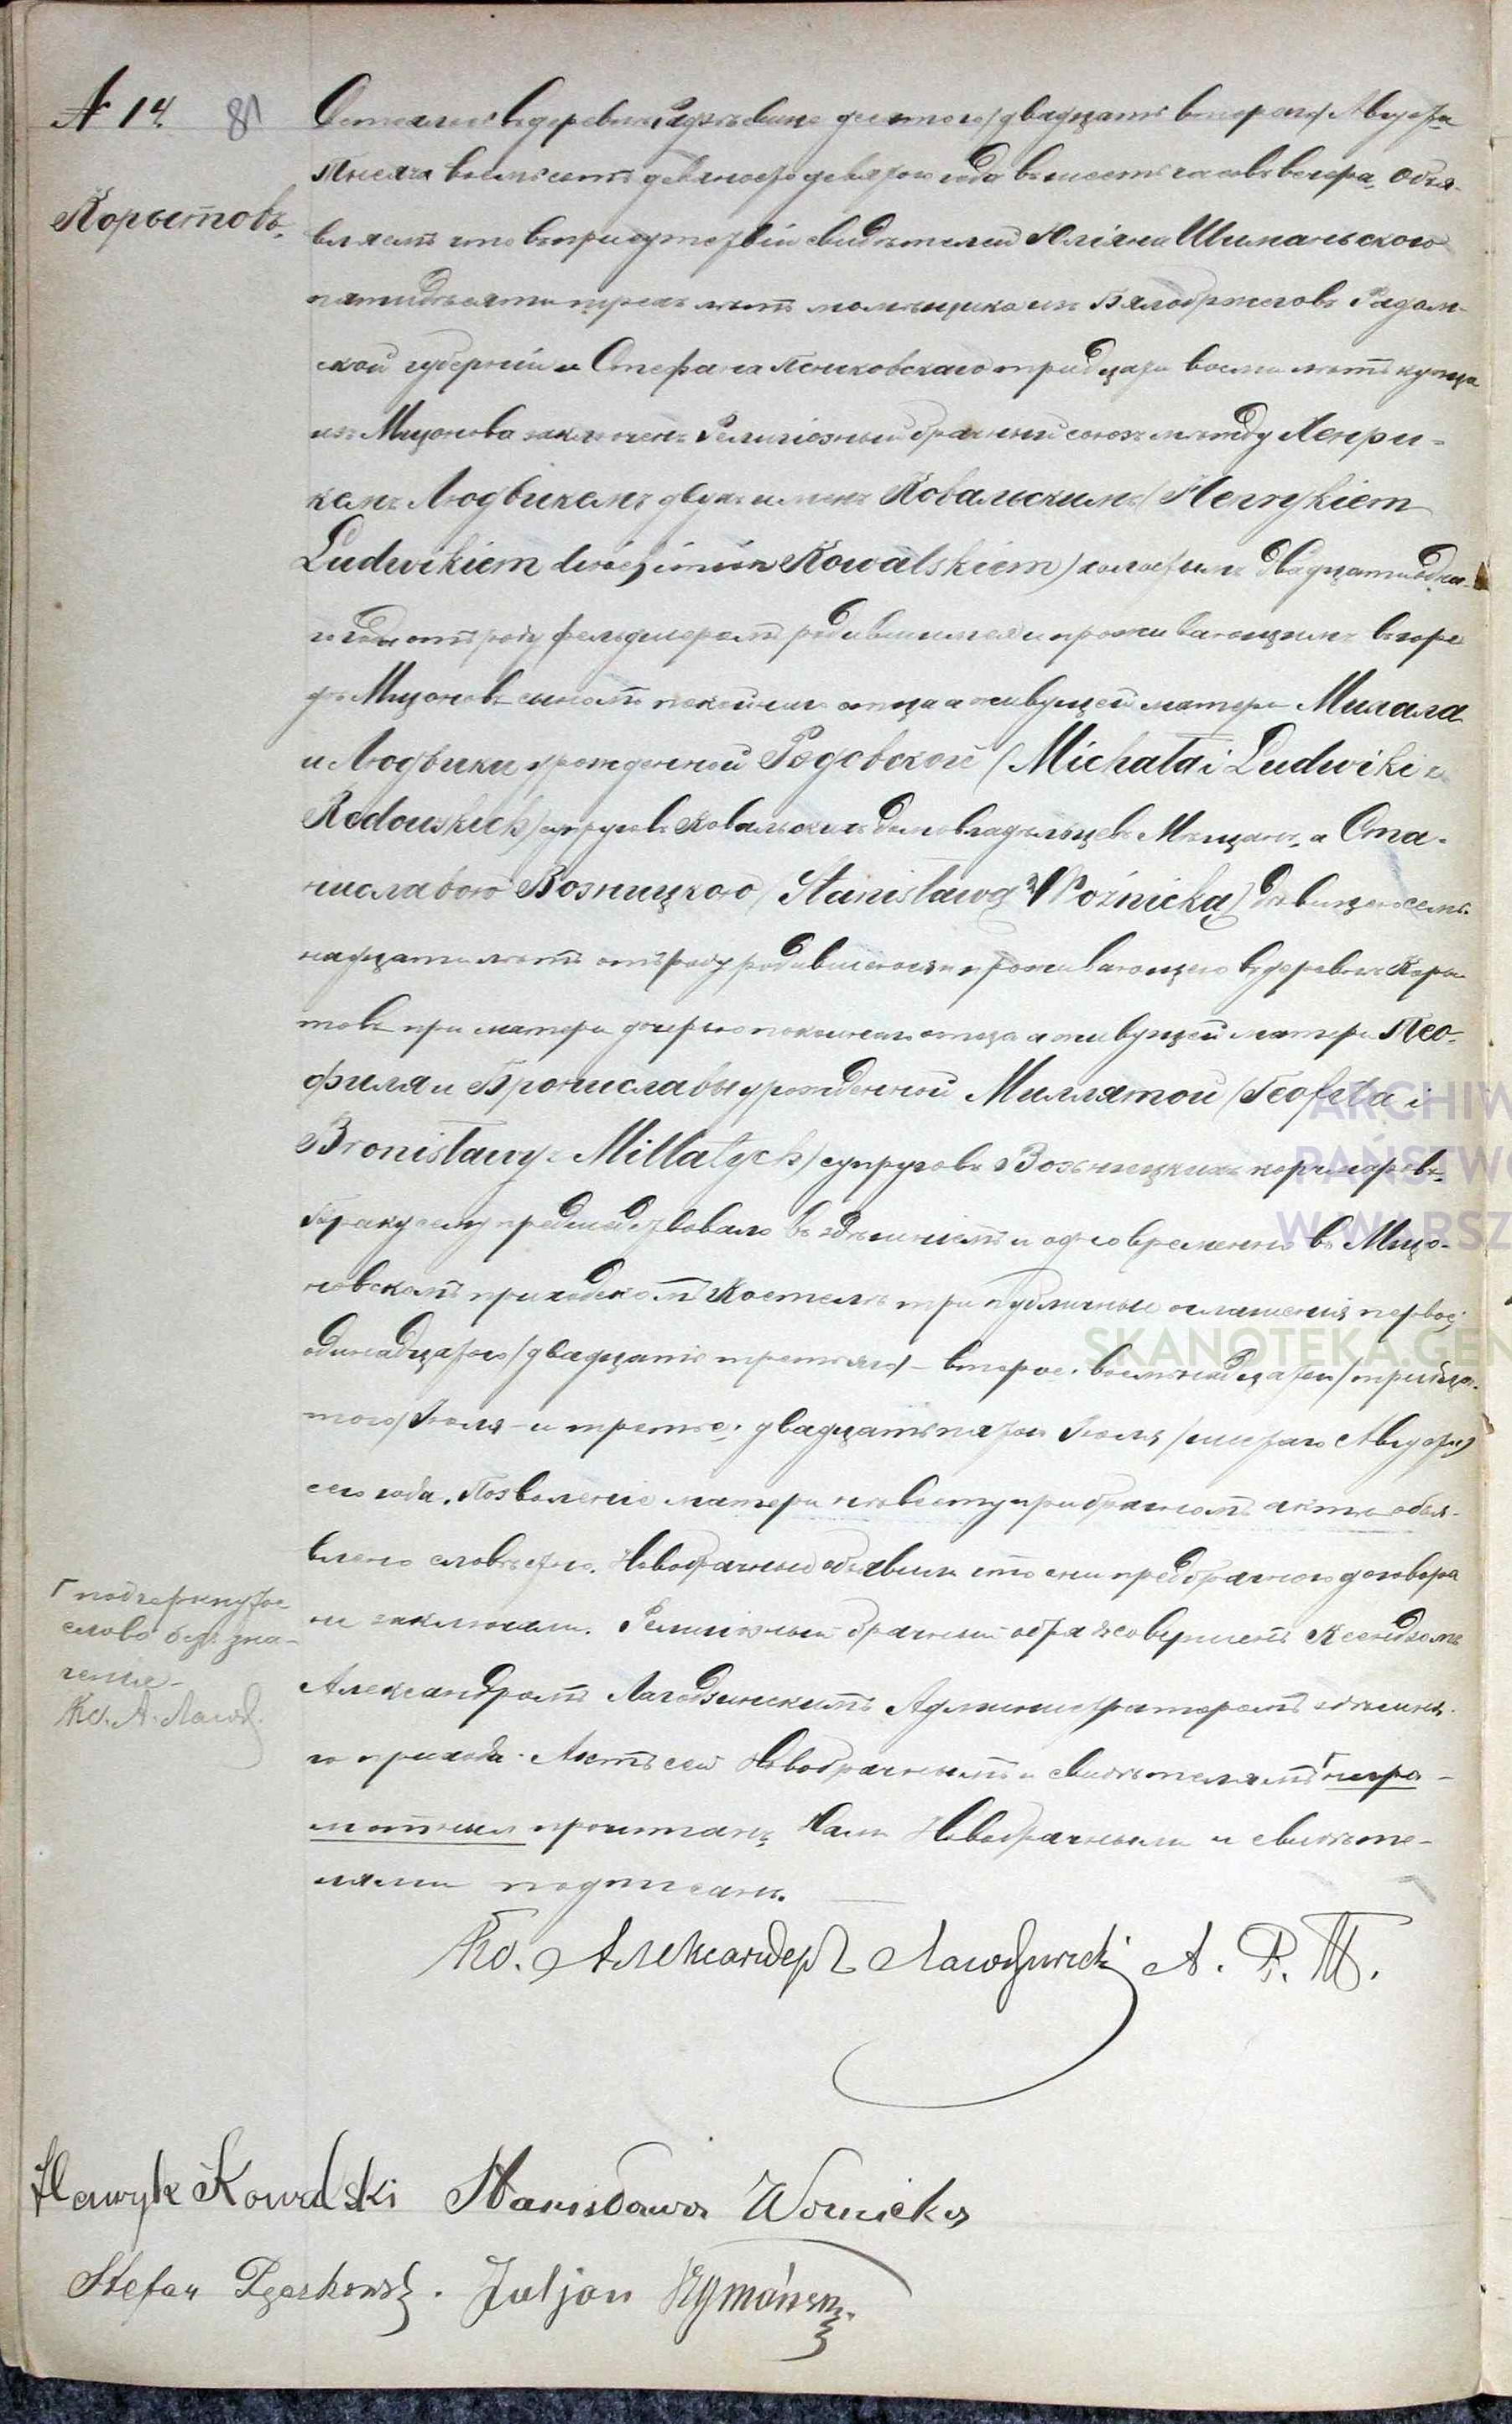 № 14. 81
Корытовъ.
Состоялось въ деревнѣ десятого /двадцать второго/ Августа
тысяча восемьсотъ девяносто девятого года въ шесть часовъ вечера. Объя-
вляемъ что въ присутствіи свидѣтелей Юліяна Шиманьского
пятидесяти трехъ лѣтъ изъ Бялобржеговъ Радом-
ской губерніи и Стефана тридцати восьми лѣтъ
изъ Мщонова заключенъ религіозный брачный союзъ между Генри-
комъ Людвикомъ двухъ именъ Ковальскимъ /Henrykiem
Ludwikiem dwóch imion Kowalskiem/ холостымъ двадцати одно-
го года отъ роду фельдшеромъ родившимся и проживающимъ въ горо
дѣ Мщоновѣ сыномъ покойнаго отца а живущей матери Михала
и Людвики урожденной Редовской (Michała i Ludwiki z
Redowskich) супруговъ Ковальскихъ домовладѣльцевъ Мѣщанъ, а Ста-
ниславою Возницкою /Stanisławą Woźnicką/ дѣвицею семь-
надцати лѣтъ отъ роду родившеюся и проживающею въ деревнѣ Коры
товѣ при матери дочерью покойнаго отца а живущей матери Тео-
филя и Брониславы урожденной Миллятой (Teofila i
Bronisławy z Millatych) супруговъ Возьницкихъ
Браку сему предшествовало въ здѣшнемъ и одновременно въ Мщо-
новскомъ приходскомъ Костелѣ три публичные оглашенія первое;
одинадцатого /двадцать третьяго/ – второе: восьмнадцатого /тридца-
того/ Іюля – и третье: двадцать пятого Іюля /шестаго Августа/
сего года. Позволеніе матери невесты при брачномъ актѣ объя-
влено словѣстно. Новобрачные объявили что они предбрачного договора
не заключали. Религіозный брачный обрядъ совершенъ Ксендзомъ
Александромъ Лагодзинскимъ Администраторомъ здѣшня-
го прихода. Актъ сей Новобрачнымъ и свидѣтелямъ Г негра-
мотнымъ прочитанъ, Нами Новобрачными и свидѣте-
лями подписанъ.
Г подчеркнутое
слово безъ зна-
ченія –
Кс. А. Лагод.
Кс. Александеръ А. Р. П.
Henryk Kowalski Stanisława Woźnicka
Stefan Juljan
ARCHIW
PAŃSTWO
W WARSZ
SKANOTEKA.GEN